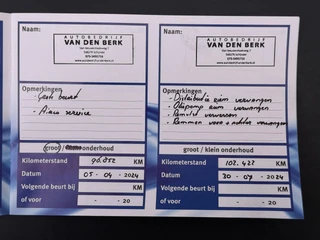 Naam:
AUTOBEDRIJF
VAN DEN BERK
Opmerkingen
- Grote beurt
- Airco service
groot / klein onderhoud
Kilometerstand 96.052 KM
Datum 05 - 04 - 2024
Volgende beurt bij KM
of voor - - 20
Naam:
AUTOBEDRIJF
VAN DEN BERK
Opmerkingen
- Distributie riem vervangen
- Oliepomp riem vervangen
- Remolie verversen
- Remmen voor + achter vervangen
groot / klein onderhoud
Kilometerstand 102.422 KM
Datum 30 - 07 - 2024
Volgende beurt bij KM
of voor - - 20